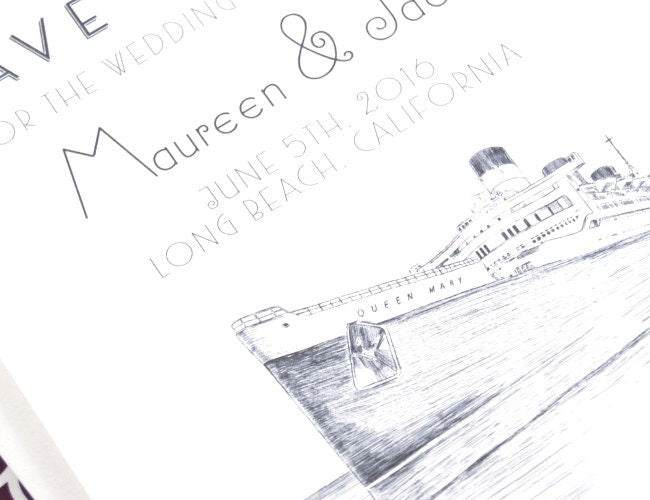 AVE
OR THE WEDDING
Maureen & Jac
JUNE 5TH, 2016
LONG BEACH, CALIFORNIA
QUEEN MARY